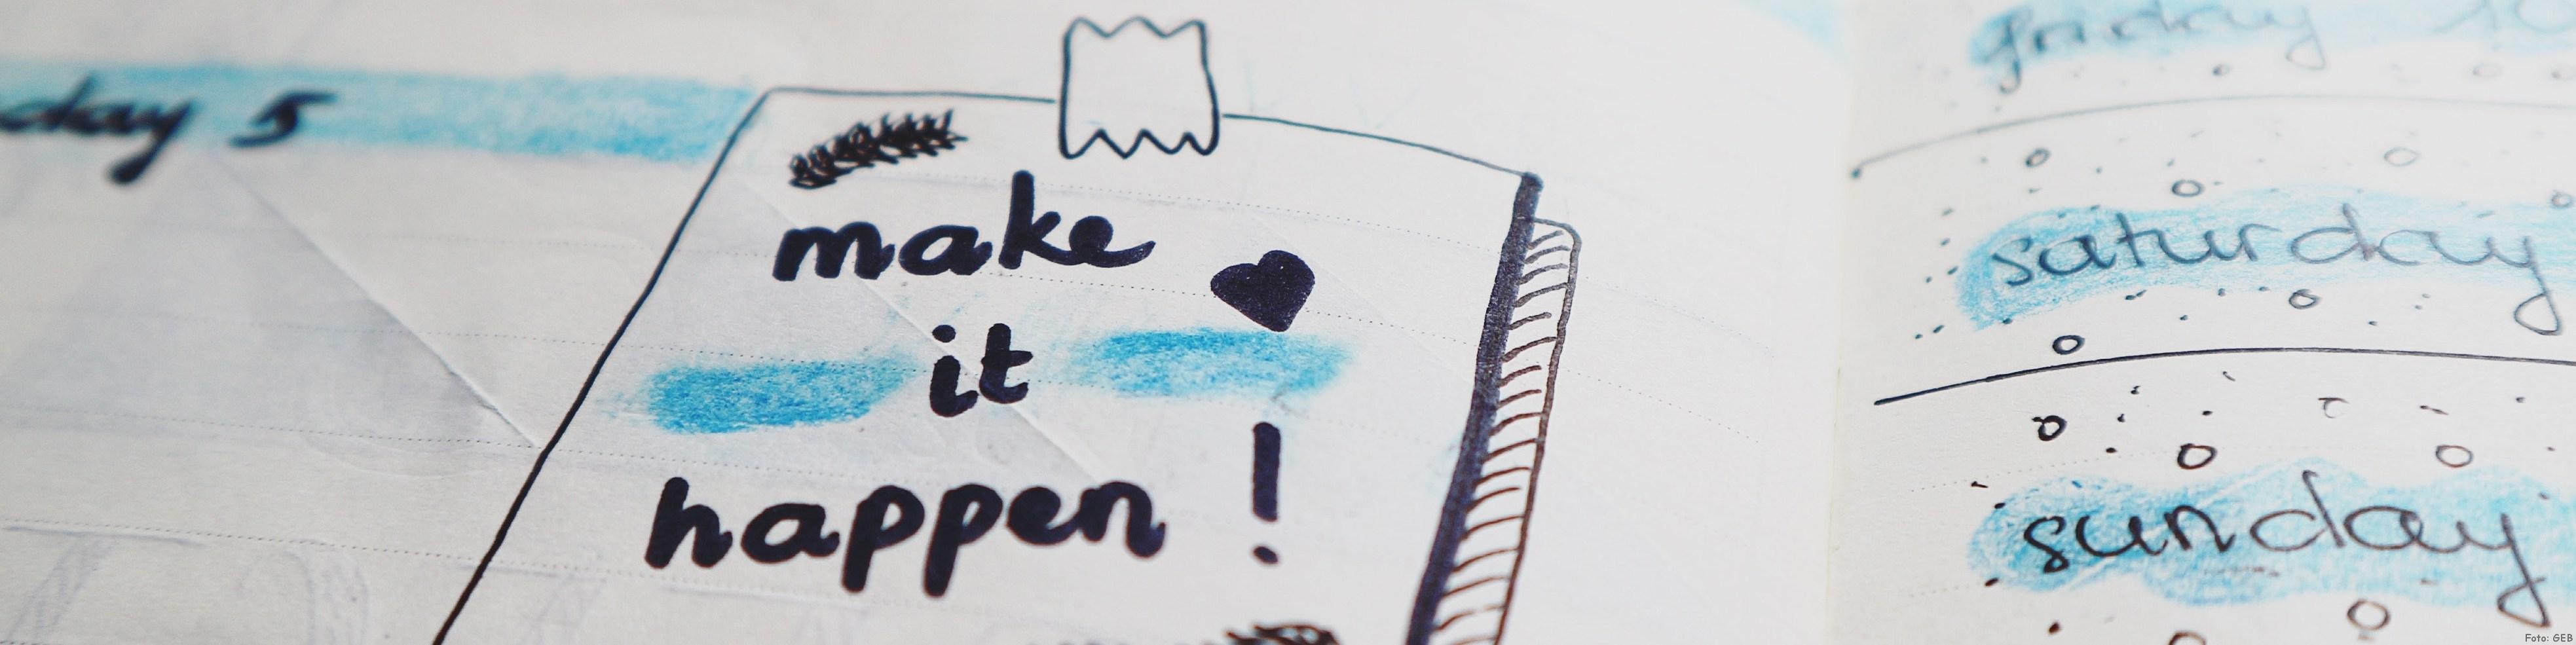 day 5
make
it
happen !
friday
saturday
sunday
Foto: GEB